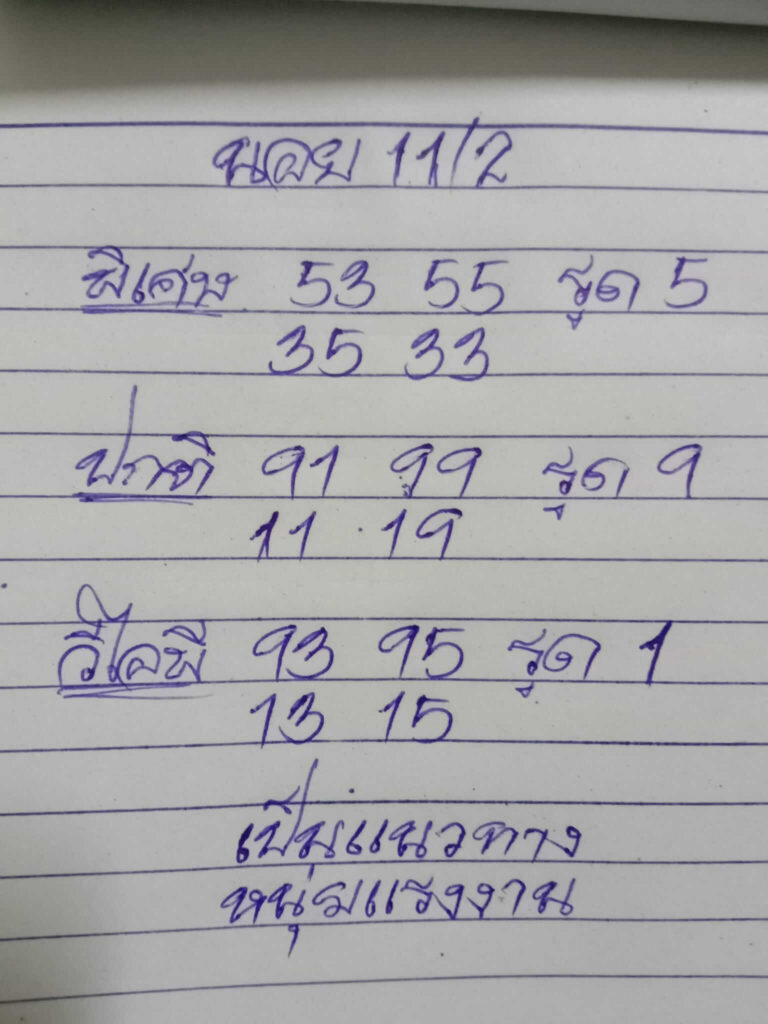 นอย 11/2
พิเศษ 53 55 รูด 5
35 33
ปกติ 91 99 รูด 9
11 19
วีไอพี 93 95 รูด 1
13 15
เป็นแนวทาง
หนุ่มแรงงาน